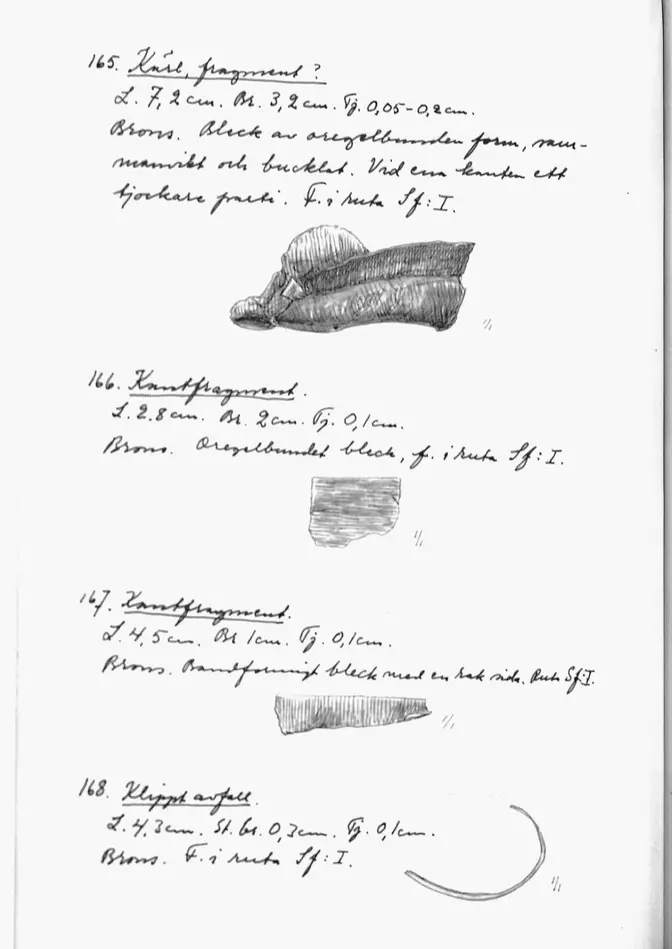 165. Kärl, fragment?
L. 7,2 cm. Br. 3,2 cm. Tj. 0,05-0,2 cm.
Brons. Bleck av oregelbunden form, sam-
manvikt och bucklat. Vid ena kanten ett
tjockare parti. F. i ruta Sf: I.
1/1
166. Kantfragment.
L. 2.8 cm. Br. 2 cm. Tj. 0,1 cm.
Brons. Oregelbundet bleck, f. i ruta Sf: I.
1/1
167. Kantfragment.
L. 4,5 cm. Br 1 cm. Tj. 0,1 cm.
Brons. Bandformigt bleck med en rak sida. Ruta Sf: I.
1/1
168. Klippt avfall.
L. 4,3 cm. St. br. 0,3 cm. Tj. 0,1 cm.
Brons. F. i ruta Sf: I.
1/1